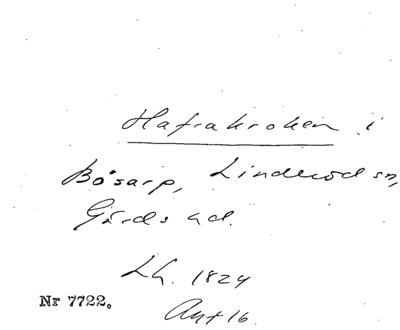 Hafrakroken i
Bösarp, Linderöd sn,
Gärds hd.
Lh. 1824
Nr 7722.
Akt 16.